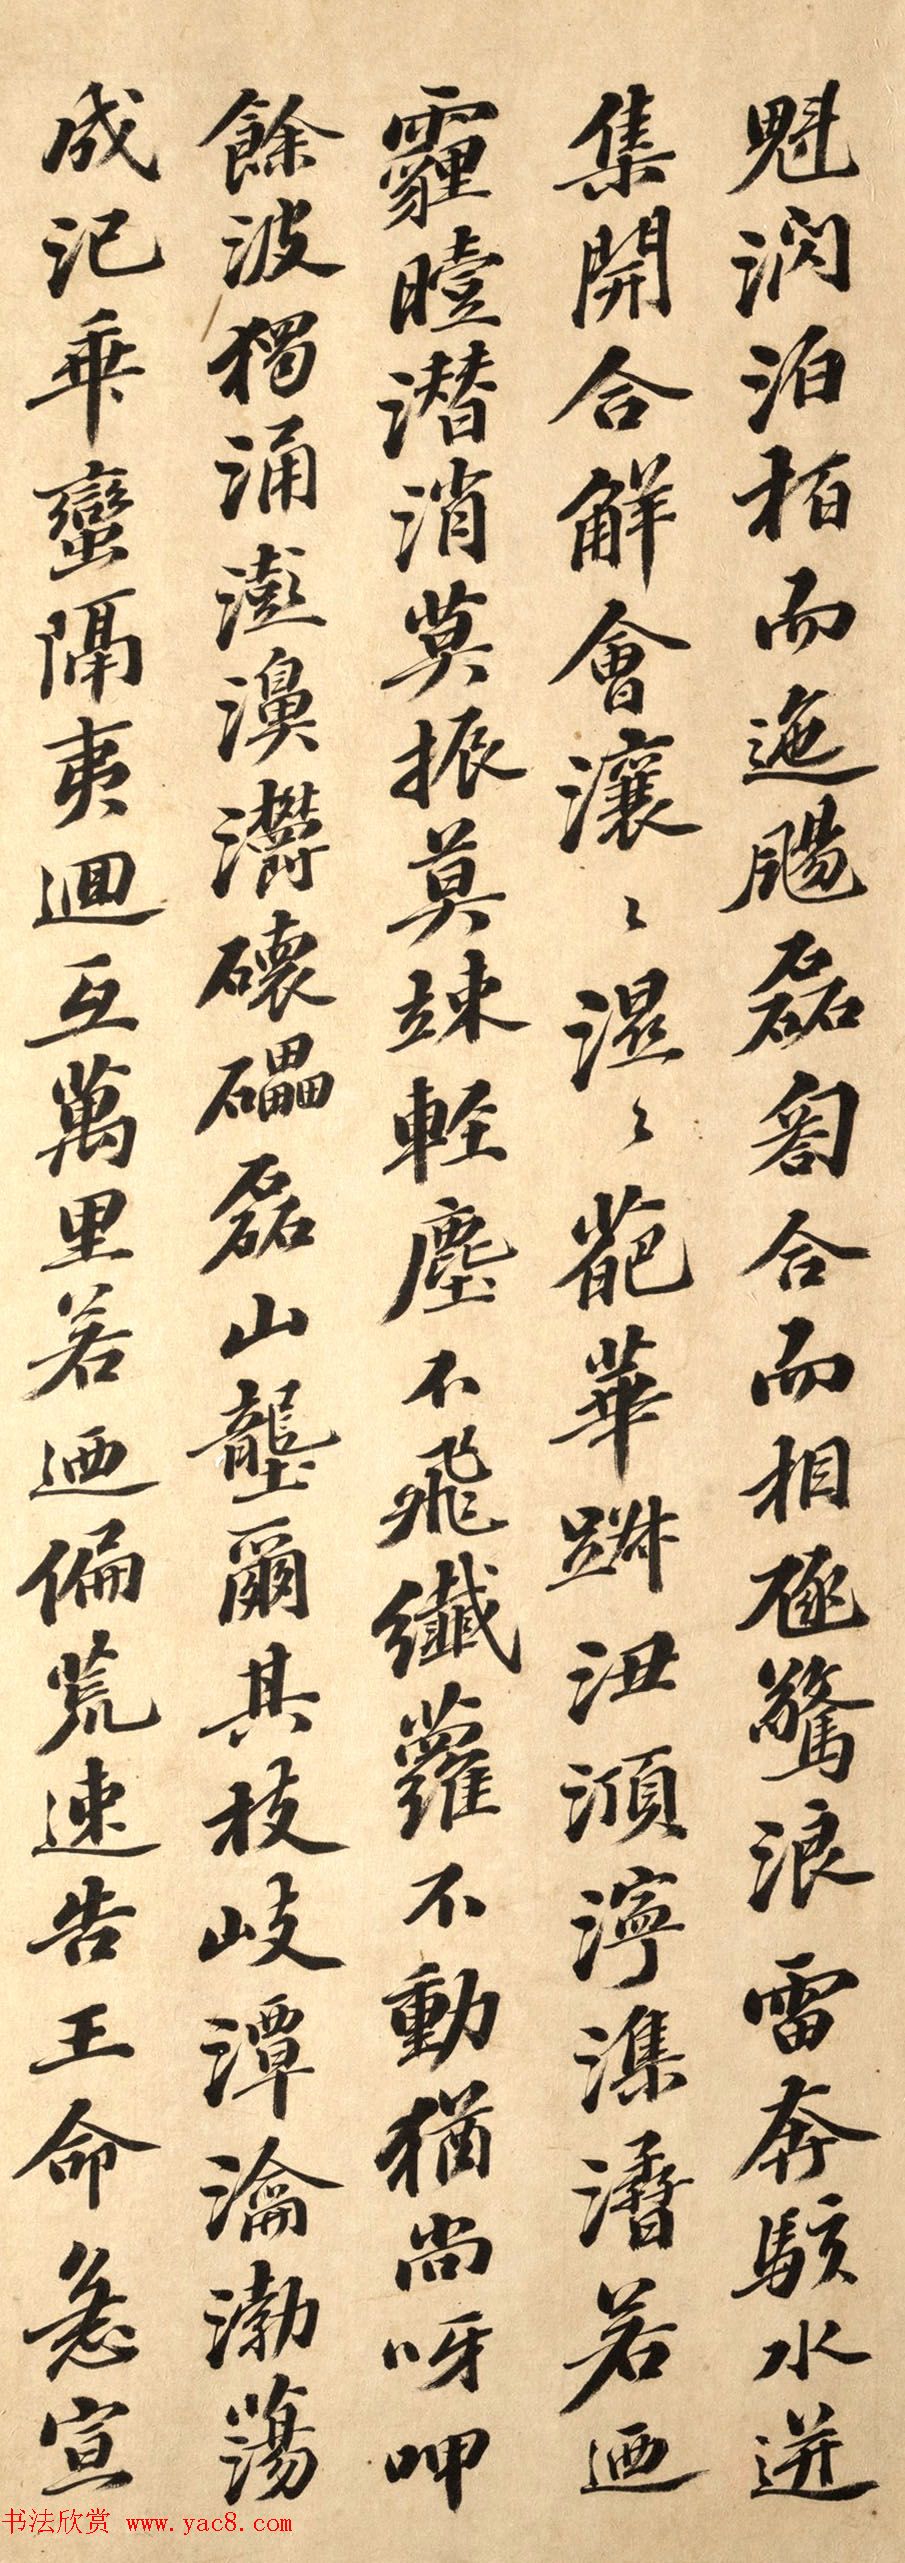 魁㴸泊栢而迤颺磊匒合而相豗驚浪雷奔駭水迸
集開合解會瀼〻濕〻葩華踧沑澒濘潗㵫若迺
霾曀潜消莫振莫竦輕塵不飛纖蘿不動猶尚呀呷
餘波獨涌澎濞灪䃶礧磊山壟爾其枝岐潭瀹渤蕩
成汜乖蠻隔夷迴互萬里若迺偏荒速告王命急宣
书法欣赏 www.yac8.com